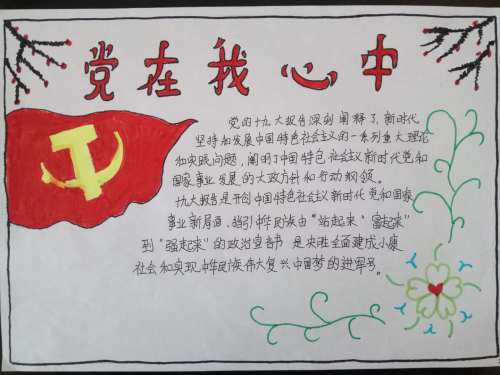 党在我心中
党的十九大报告深刻阐释了新时代
坚持和发展中国特色社会主义的一系列重大理论
和实践问题，阐明了中国特色社会主义新时代党和
国家事业发展的大政方针和行动纲领。
十九大报告是开创中国特色社会主义新时代党和国家
事业新局面、指引中华民族由“站起来、富起来”
到“强起来”的政治宣言书 是决胜全面建成小康
社会和实现中华民族伟大复兴中国梦的进军号。